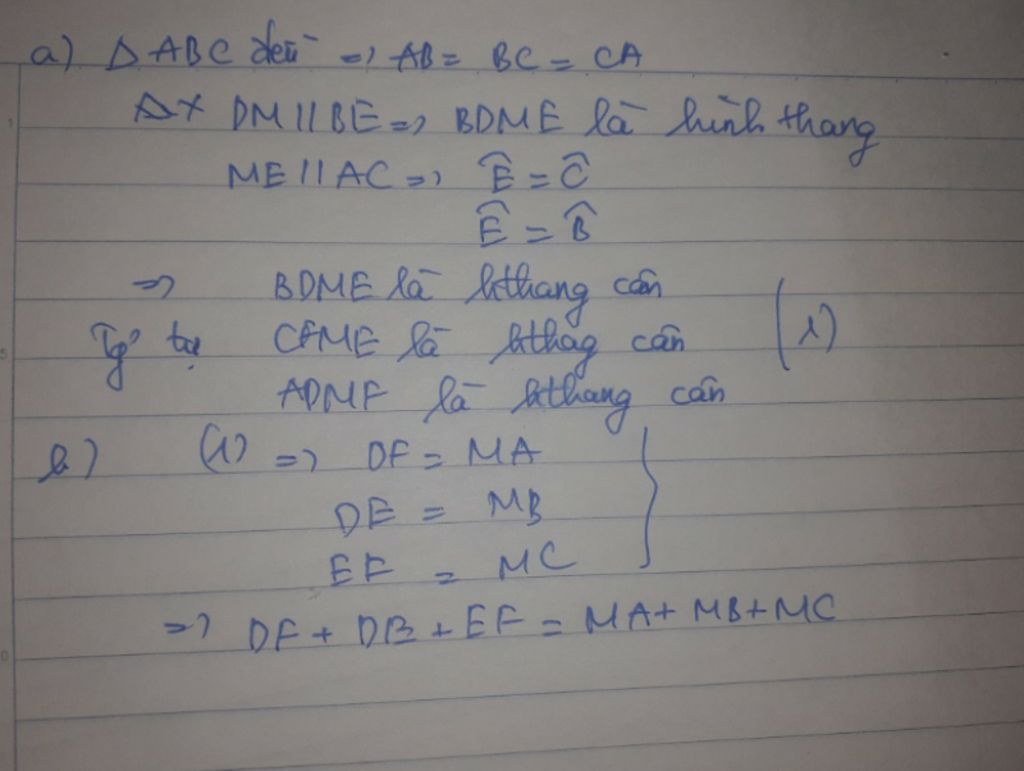 a) Δ ABC đều => AB = BC = CA
Δx DM // BE => BDME là hình thang
ME // AC => Ê = Ĉ
Ê = B̂
=> BDME là hthang cân
Tg' tự CFME là hthag cân (1)
ADMF là hthang cân
b) (1) => DF = MA
DE = MB
EF = MC
=> DF + DB + EF = MA + MB + MC